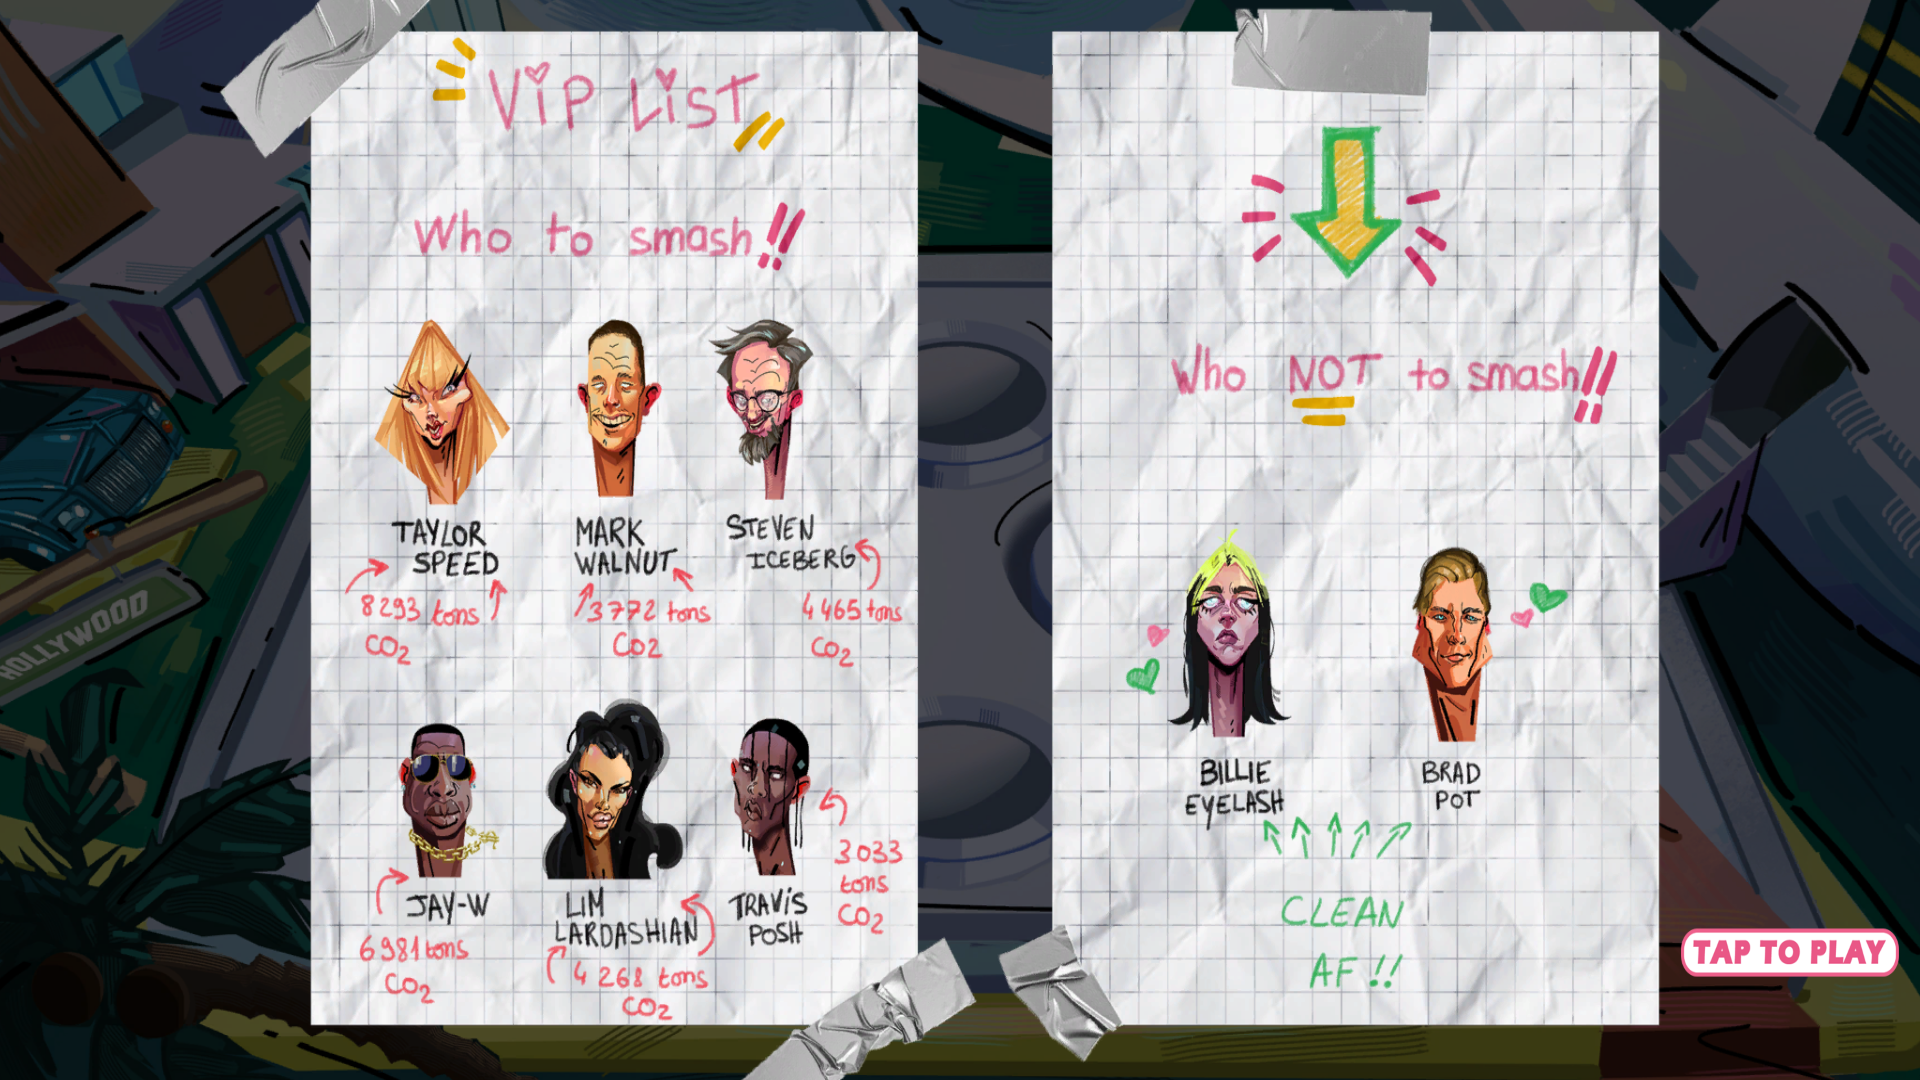 ViP LiST
Who to smash!!
TAYLOR
SPEED
8293 tons
CO2
MARK
WALNUT
3772 tons
CO2
STEVEN
ICEBERG
4465 tons
CO2
JAY-W
6981 tons
CO2
LIM
LARDASHIAN
4268 tons
CO2
TRAViS
POSH
3033
tons
CO2
Who NOT to smash!!
BILLIE
EYELASH
BRAD
POT
CLEAN
AF!!
HOLLYWOOD
TAP TO PLAY